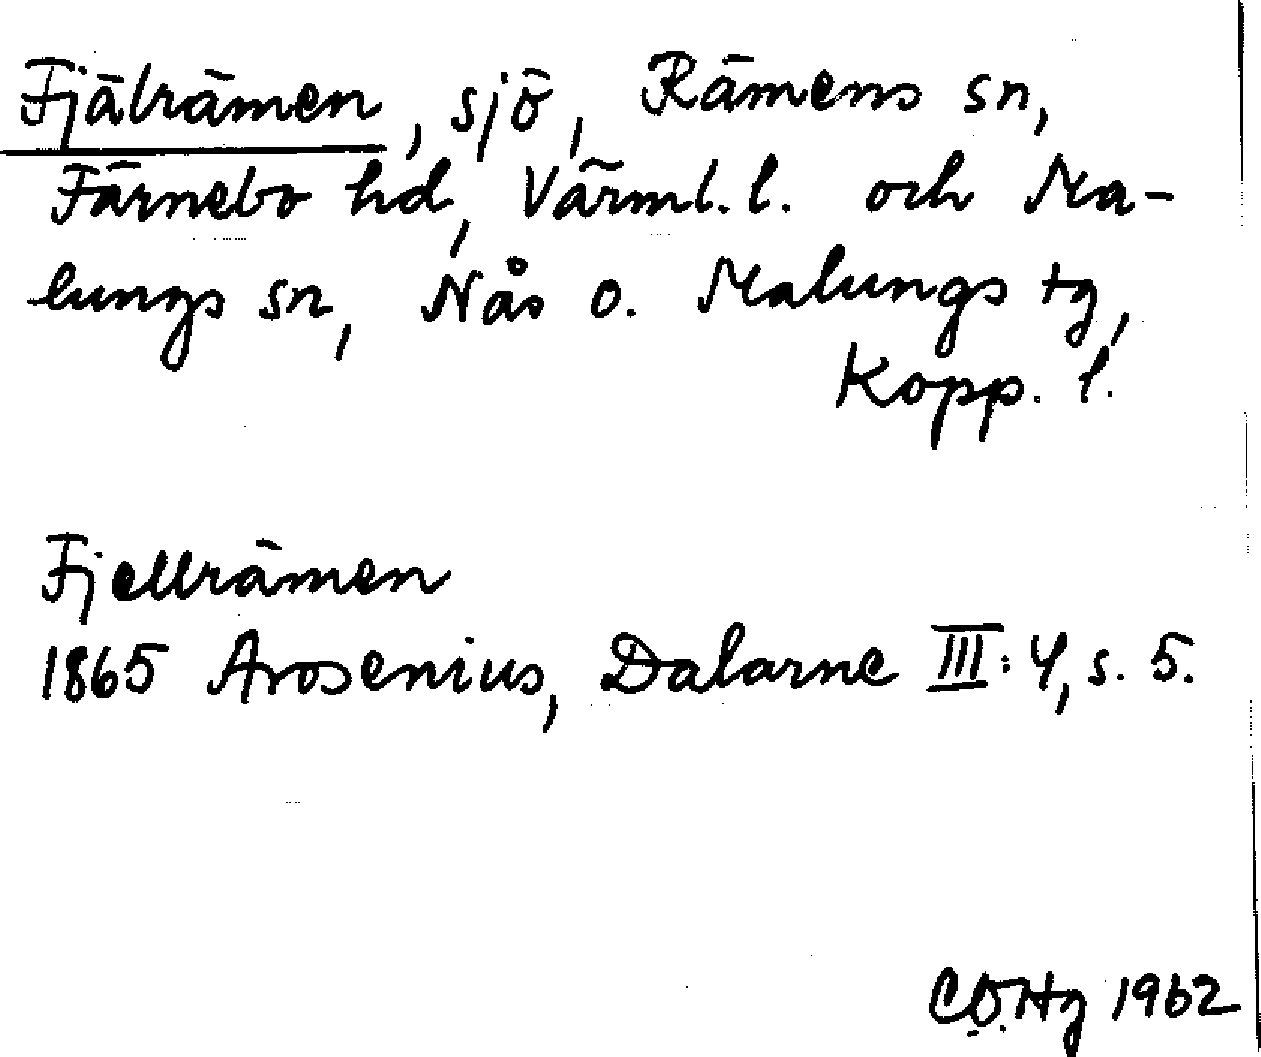 Fjälrämen, sjö, Rämens sn,
Färnebo hd, Värml. l. och Ma-
lungs sn, Nås o. Malungs tg,
Kopp. l.
Fjellrämen
1865 Arosenius, Dalarne III:4, s. 5.
1962